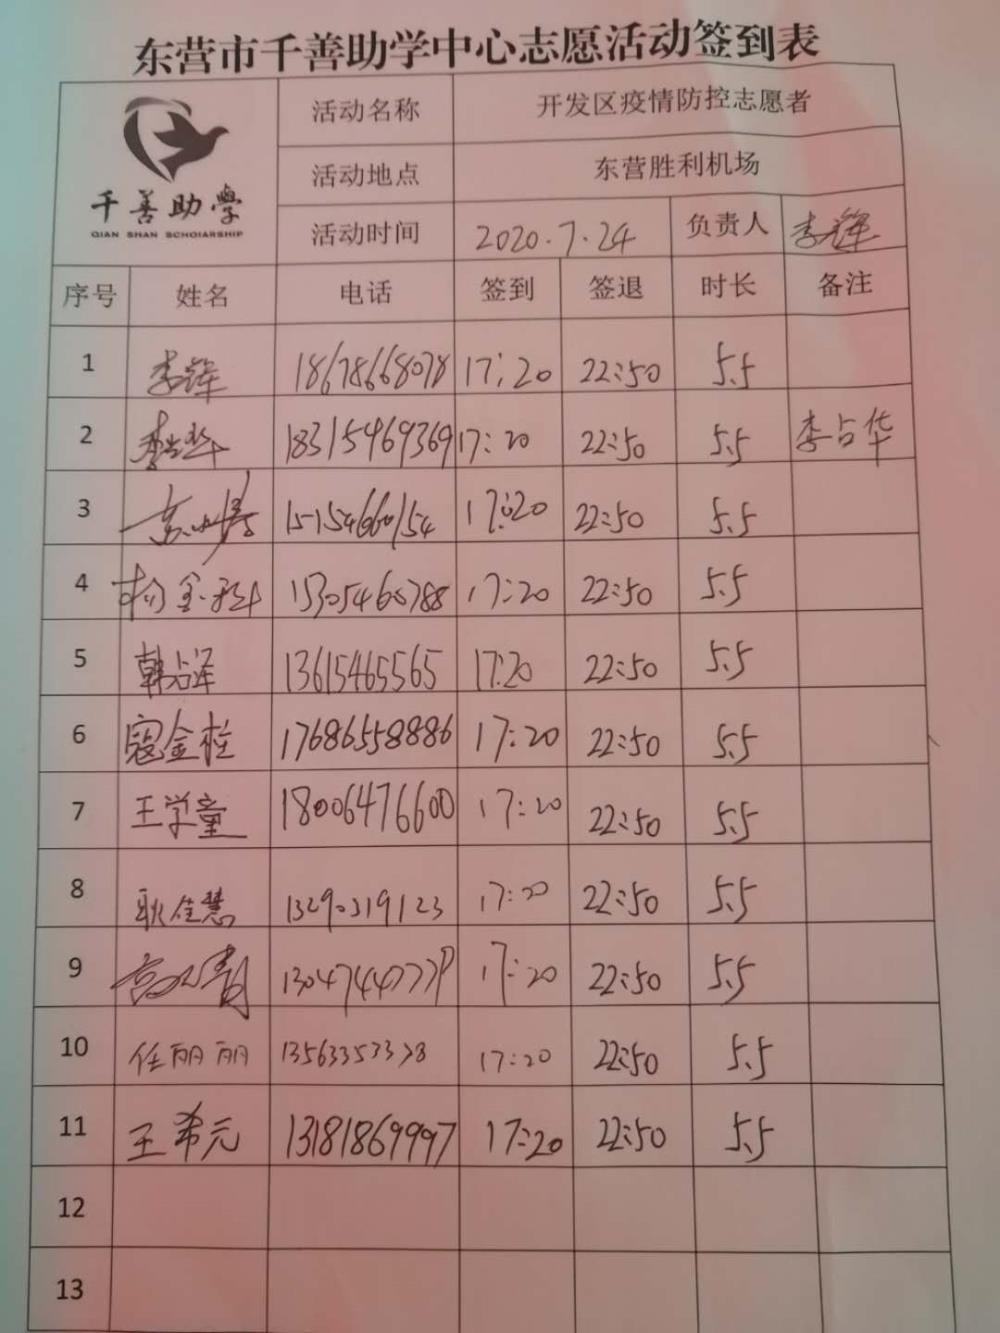 东营市千善助学中心志愿活动签到表
千善助學
QIAN SHAN SCHOIARSHIP
活动名称 开发区疫情防控志愿者
活动地点 东营胜利机场
活动时间 2020.7.24 负责人 李辉
序号 姓名 电话 签到 签退 时长 备注
1 李辉 18678668078 17:20 22:50 5.5
2 李占华 18315469369 17:20 22:50 5.5 李占华
3 15154660154 17:20 22:50 5.5
4 15305460788 17:20 22:50 5.5
5 韩占泽 13615465565 17:20 22:50 5.5
6 寇金栓 17686558886 17:20 22:50 5.5
7 王学童 18006476600 17:20 22:50 5.5
8 耿佳慧 17:20 22:50 5.5
9 17:20 22:50 5.5
10 任丽丽 17:20 22:50 5.5
11 王希元 13181869997 17:20 22:50 5.5
12
13